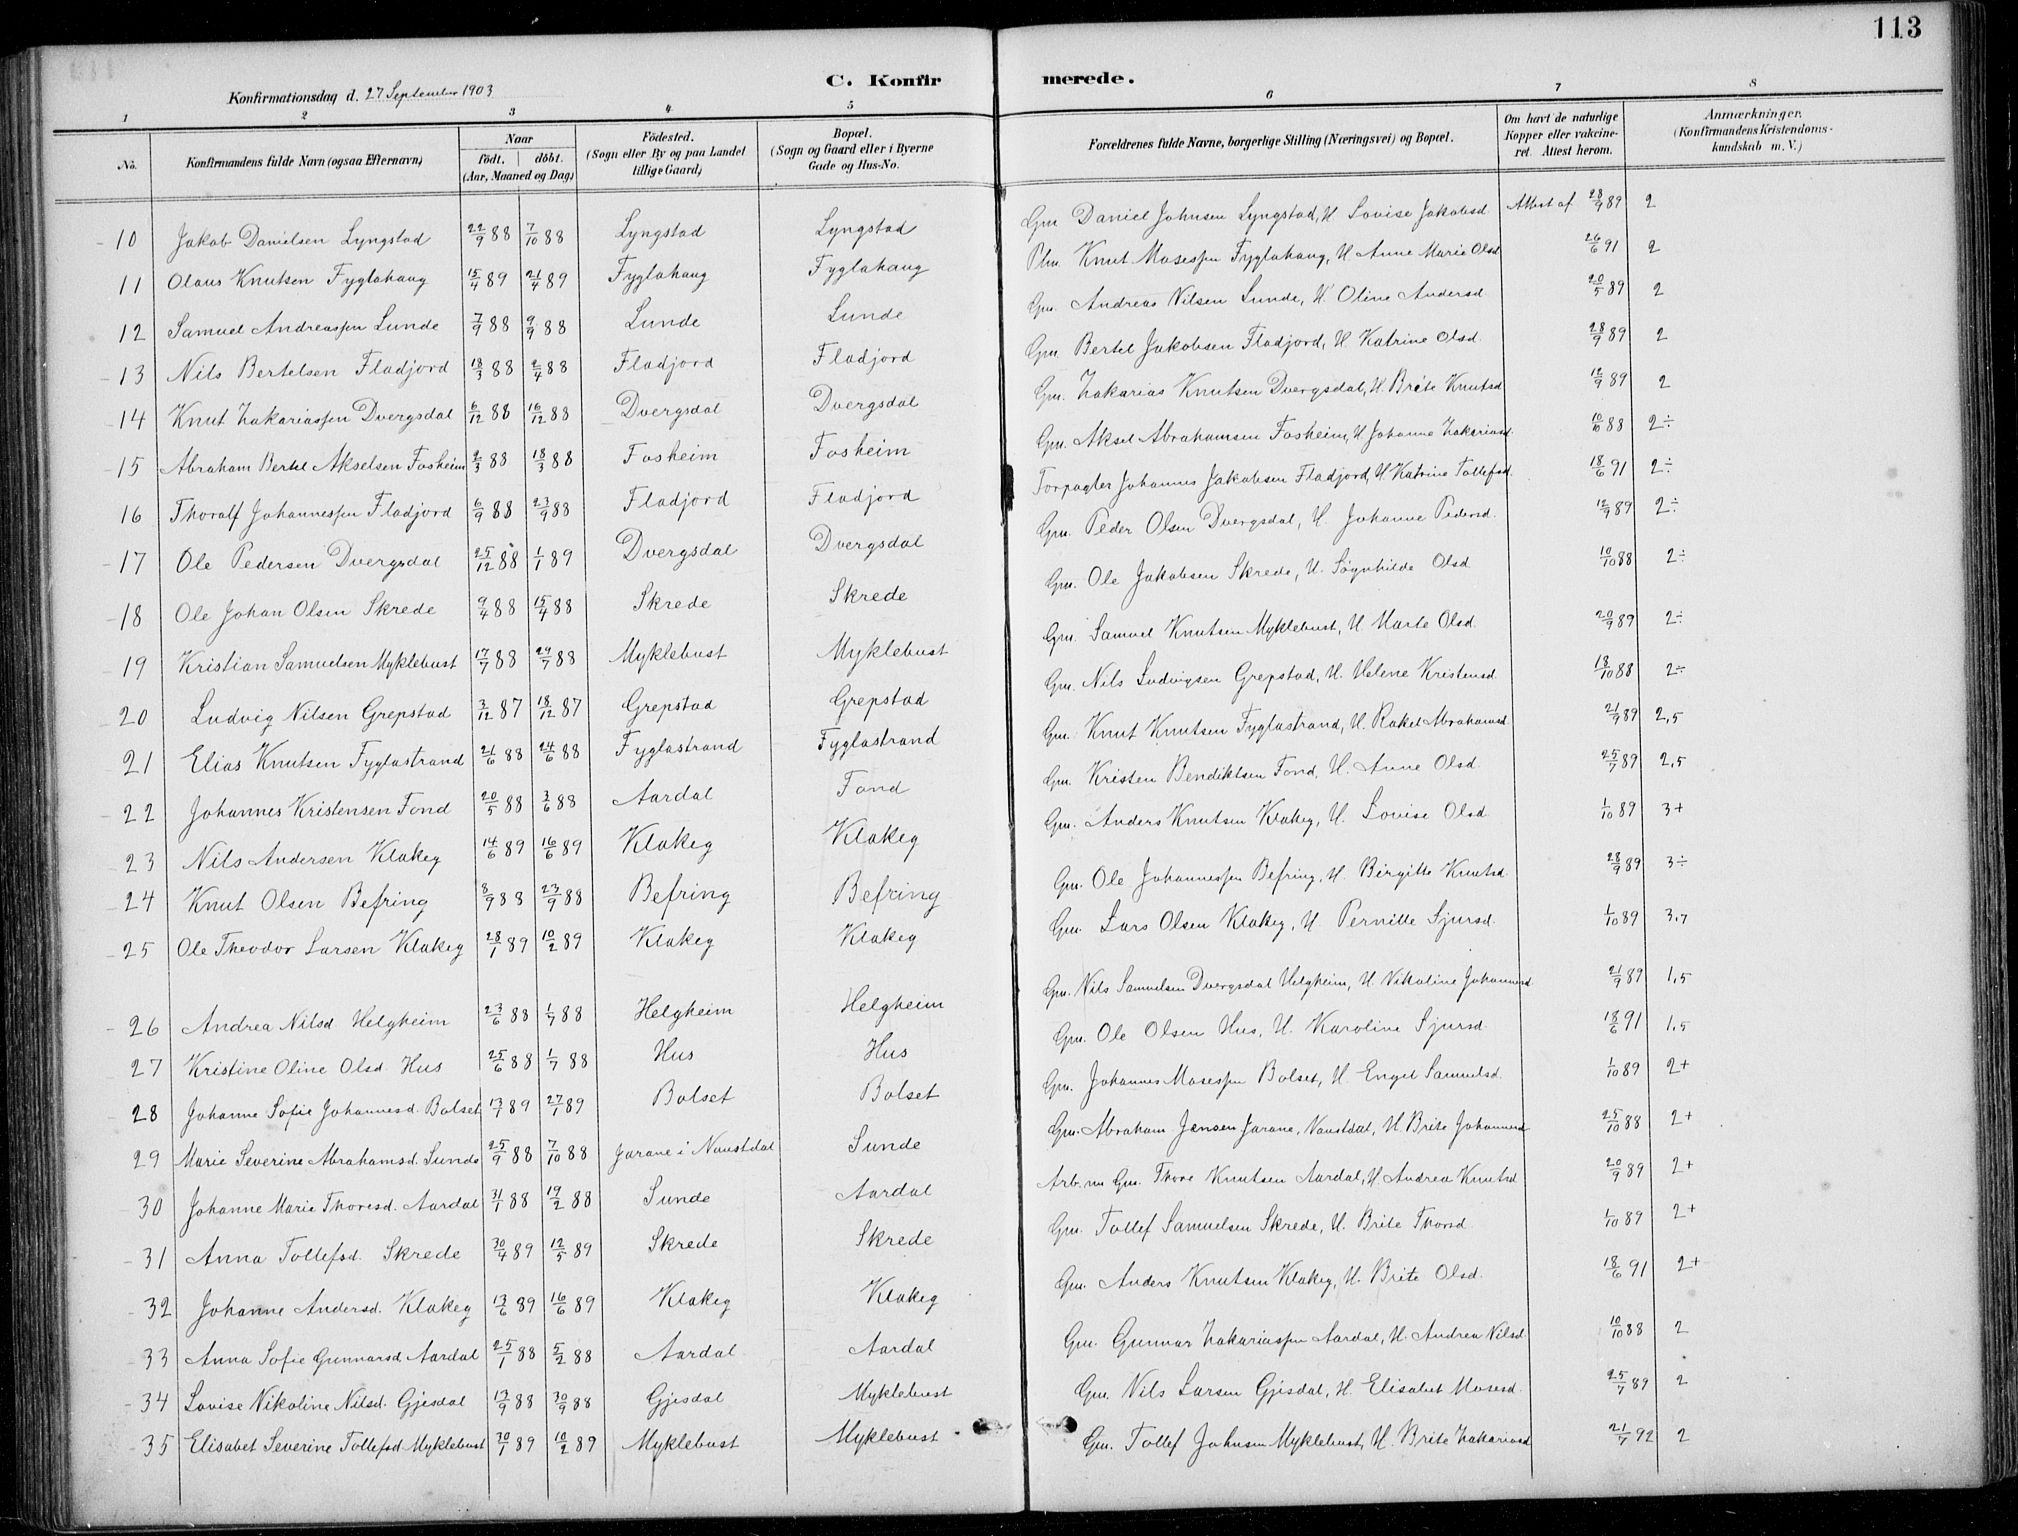 113
C. Konfirmerede.
Konfirmationsdag d. 27 September 1903
1 2 3 4 5 6 7 8
No. | Konfirmandens fulde Navn (ogsaa Efternavn) | Naar født. | døbt. (Aar, Maaned og Dag) | Fødested. (Sogn eller By og paa Landet tillige Gaard) | Bopæl. (Sogn og Gaard eller i Byerne Gade og Hus-No. | Forældrenes fulde Navne, borgerlige Stilling (Næringsvei) og Bopæl. | Om havt de naturlige Kopper eller vakcineret. Attest herom. | Anmærkninger. (Konfirmandens Kristendomskundskab m. V.)
10 Jakob Danielsen Lyngstad 22/9 88 7/10 88 Lyngstad Lyngstad Gm. Daniel Johnsen Lyngstad, H. Lovise Jakobsd. Attest af 28/9 89 2
11 Olaus Knutsen Fyglahaug 15/4 89 21/4 89 Fyglahaug Fyglahaug Plm. Knut Mosessen Fyglahaug, H. Anne Marie Olsd 26/6 91 2
12 Samuel Andreassen Sunde 7/9 88 9/9 88 Sunde Sunde Gm. Andreas Nilsen Sunde, H. Oline Andersd. 20/5 89 2
13 Nils Bertelsen Fladjord 18/3 88 2/4 88 Fladjord Fladjord Gm. Bertel Jakobsen Fladjord, H. Katrine Olsd. 28/9 89 2
14 Knut Zakariassen Dvergsdal 6/12 88 16/12 88 Dvergsdal Dvergsdal Gm. Zakarias Knutsen Dvergsdal, H. Brite Knutsd 12/9 89 2
15 Abraham Bertel Akselsen Fosheim 2/3 88 18/3 88 Fosheim Fosheim Gm. Aksel Abrahamsen Fosheim, H. Johanne Zakariasd. 10/10 88 2÷
16 Thoralf Johannessen Fladjord 6/9 88 23/9 88 Fladjord Fladjord Forpagter Johannes Jakobsen Fladjord, H. Katrine Tollefsd. 18/6 91 2÷
17 Ole Pedersen Dvergsdal 25/12 88 1/1 89 Dvergsdal Dvergsdal Gm. Peder Olsen Dvergsdal, H. Johanne Pedersd. 12/9 89 2÷
18 Ole Johan Olsen Skrede 9/4 88 15/4 88 Skrede Skrede Gm. Ole Jakobsen Skrede, H. Søgnhilde Olsd 10/10 88 2÷
19 Kristian Samuelsen Myklebust 17/7 88 29/7 88 Myklebust Myklebust Gm. Samuel Knutsen Myklebust, H. Marte Olsd. 20/9 89 2÷
20 Ludvig Nilsen Grepstad 3/12 87 18/12 87 Grepstad Grepstad Gm. Nils Ludvigsen Grepstad, H. Helene Kristensd. 18/10 88 2÷
21 Elias Knutsen Fyglastrand 21/6 88 24/6 88 Fyglastrand Fyglastrand Gm. Knut Knutsen Fyglastrand, H. Rakel Abrahamsd. 21/9 89 2,5
22 Johannes Kristensen Fond 20/5 88 3/6 88 Aardal Fond Gm. Kristen Bendiktsen Fond, H. Anne Olsd. 25/7 89 2,5
23 Nils Andersen Klakeg 14/6 89 16/6 89 Klakeg Klakeg Gm. Anders Knutsen Klakeg, H. Lovise Olsd. 1/10 89 3+
24 Knut Olsen Befring 8/9 88 23/9 88 Befring Befring Gm. Ole Johannessen Befring, H. Birgitte Knutsd. 28/9 89 3÷
25 Ole Theodor Larsen Klakeg 28/1 89 10/2 89 Klakeg Klakeg Gm. Lars Olsen Klakeg, H. Pernille Sjursd. 1/10 89 3,7
26 Andrea Nilsd. Helgheim 23/6 88 1/7 88 Helgheim Helgheim Gm. Nils Samuelsen Dvergsdal Helgheim, H. Nikoline Johannesd 21/9 89 1,5
27 Kristine Oline Olsd. Hus 25/6 88 1/7 88 Hus Hus Gm. Ole Olsen Hus, H. Karoline Sjursd. 18/6 91 1,5
28 Johanne Sofie Johannesd. Bolset 13/1 89 27/1 89 Bolset Bolset Gm. Johannes Mosessen Bolset, H. Engel Samuelsd. 1/10 89 2+
29 Marie Severine Abrahamsd. Sunde 25/9 88 7/10 88 Jarane i Naustdal Sunde Gm. Abraham Jensen Jarane, Naustdal, H. Brite Johannesd 25/10 88 2+
30 Johanne Marie Thoresd. Aardal 31/1 88 19/2 88 Sunde Aardal Arb. nu Gm. Thore Knutsen Aardal, H. Andrea Knutsd 20/9 89 2+
31 Anna Tollefsd. Skrede 30/4 89 12/5 89 Skrede Skrede Gm. Tollef Samuelsen Skrede, H. Brite Thorsd. 1/10 89 2+
32 Johanne Andersd. Klakeg 13/6 89 16/6 89 Klakeg Klakeg Gm. Anders Knutsen Klakeg, H. Brite Olsd. 18/6 91 2+
33 Anna Sofie Gunnarsd. Aardal 25/1 88 5/2 88 Aardal Aardal Gm. Gunnar Zakariassen Aardal, H. Andrea Nilsd. 10/10 88 2
34 Lovise Nikoline Nilsd. Gjesdal 13/9 88 30/9 88 Gjesdal Myklebust Gm. Nils Larsen Gjesdal, H. Elisabet Mosesd. 25/7 89 2
35 Elisabet Severine Tollefsd. Myklebust 30/1 89 10/2 89 Myklebust Myklebust Gm. Tollef Johnsen Myklebust, H. Brite Zakariasd 21/7 92 2